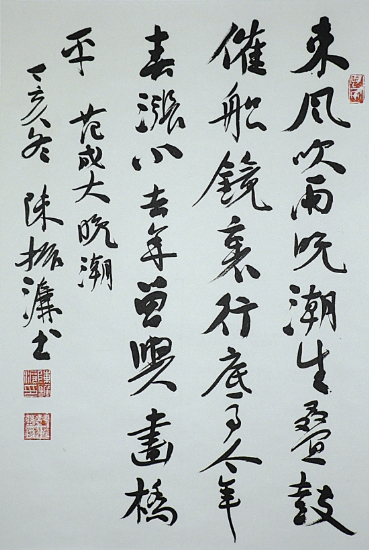 東風吹雨晚潮生疊鼓
催船鏡裏行底事今年
春漲小去年曾與畫橋
平 范成大晚潮
丁亥冬 陳振濂书